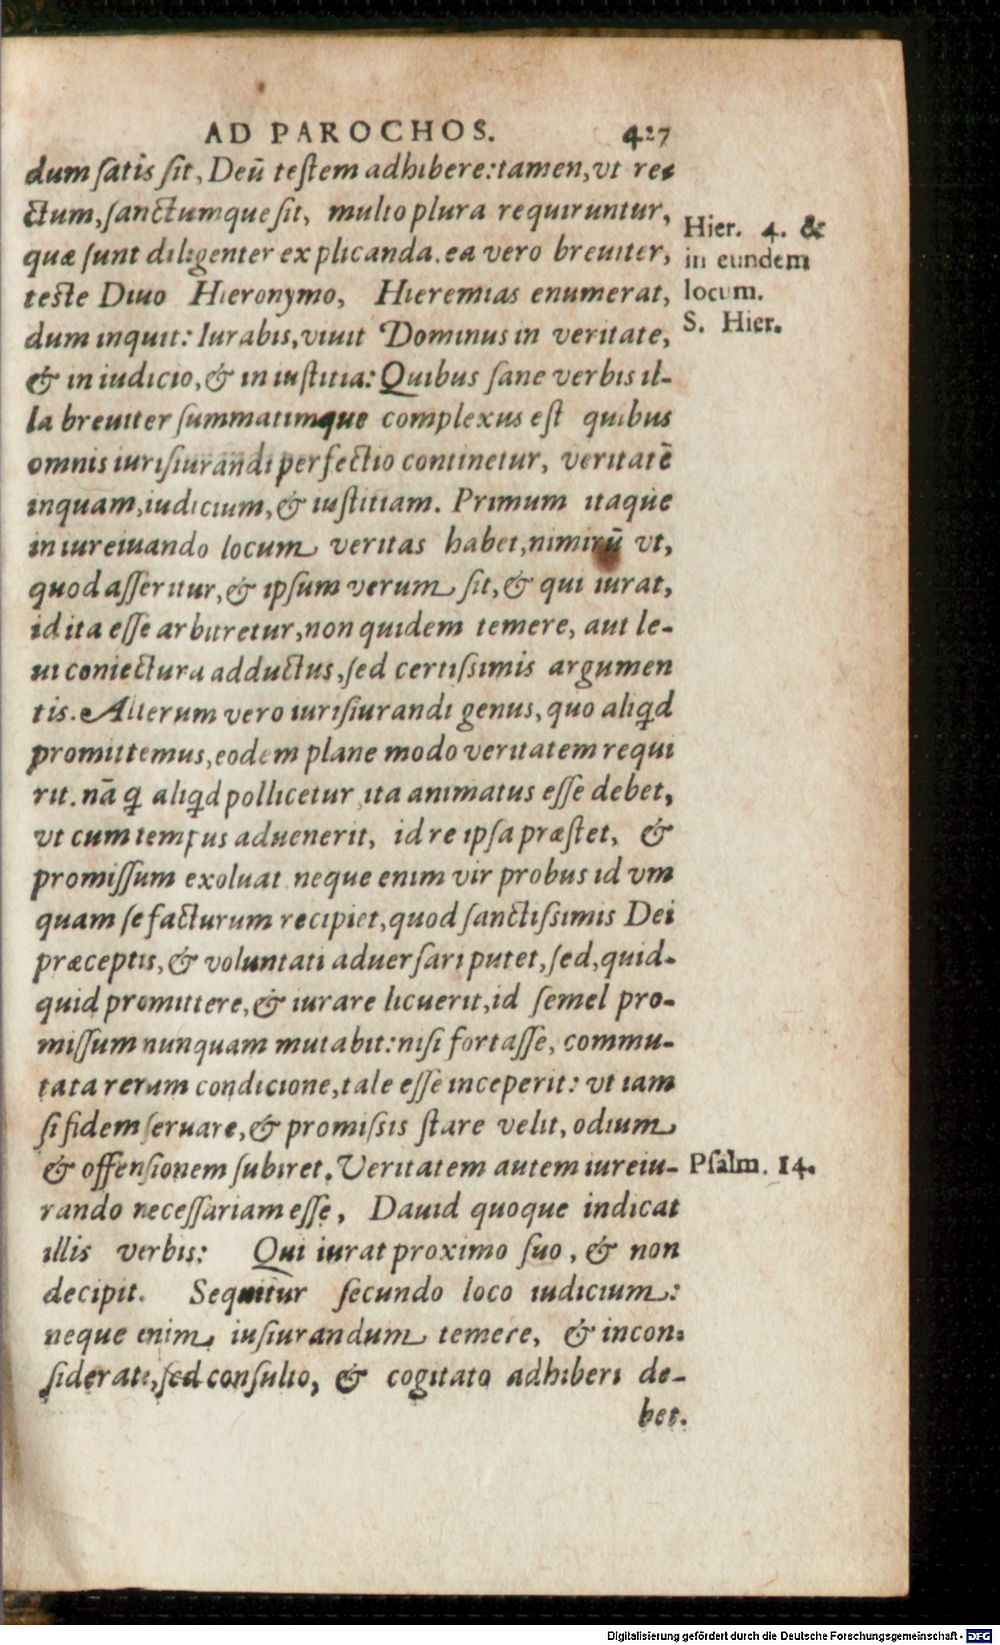 AD PAROCHOS. 427
dum satis sit, Deū testem adhibere: tamen, vt re-
ctum, sanctumque sit, multo plura requiruntur,
quæ sunt diligenter explicanda. ea vero breuiter,
teste Diuo Hieronymo, Hieremias enumerat,
dum inquit: Iurabis, viuit Dominus in veritate,
& in iudicio, & in iustitia: Quibus sane verbis il-
la breuiter summatimque complexus est quibus
omnis iurisiurandi perfectio continetur, veritatē
inquam, iudicium, & iustitiam. Primum itaque
in iureiuando locum veritas habet, nimirū vt,
quod asseritur, & ipsum verum sit, & qui iurat,
id ita esse arbitretur, non quidem temere, aut le-
ui coniectura adductus, sed certissimis argumen
tis. Alterum vero iurisiurandi genus, quo aliq́d
promittemus, eodem plane modo veritatem requi
rit. nā q́ aliq́d pollicetur ita animatus esse debet,
vt cum tempus aduenerit, id re ipsa præstet, &
promissum exoluat neque enim vir probus id vm
quam se facturum recipiet, quod sanctissimis Dei
præceptis, & voluntati aduersari putet, sed, quid-
quid promittere, & iurare licuerit, id semel pro-
missum nunquam mutabit: nisi fortasse, commu-
tata rerum condicione, tale esse inceperit: vt iam
si fidem seruare, & promissis stare velit, odium
& offensionem subiret. Veritatem autem iureiu-
rando necessariam esse, Dauid quoque indicat
illis verbis: Qui iurat proximo suo, & non
decipit. Sequitur secundo loco iudicium:
neque enim iusiurandum temere, & incon-
siderate, sed consulto, & cogitato adhiberi de-
bet.
Hier. 4. &
in eundem
locum.
S. Hier.
Psalm. 14.
Digitalisierung gefördert durch die Deutsche Forschungsgemeinschaft - DFG